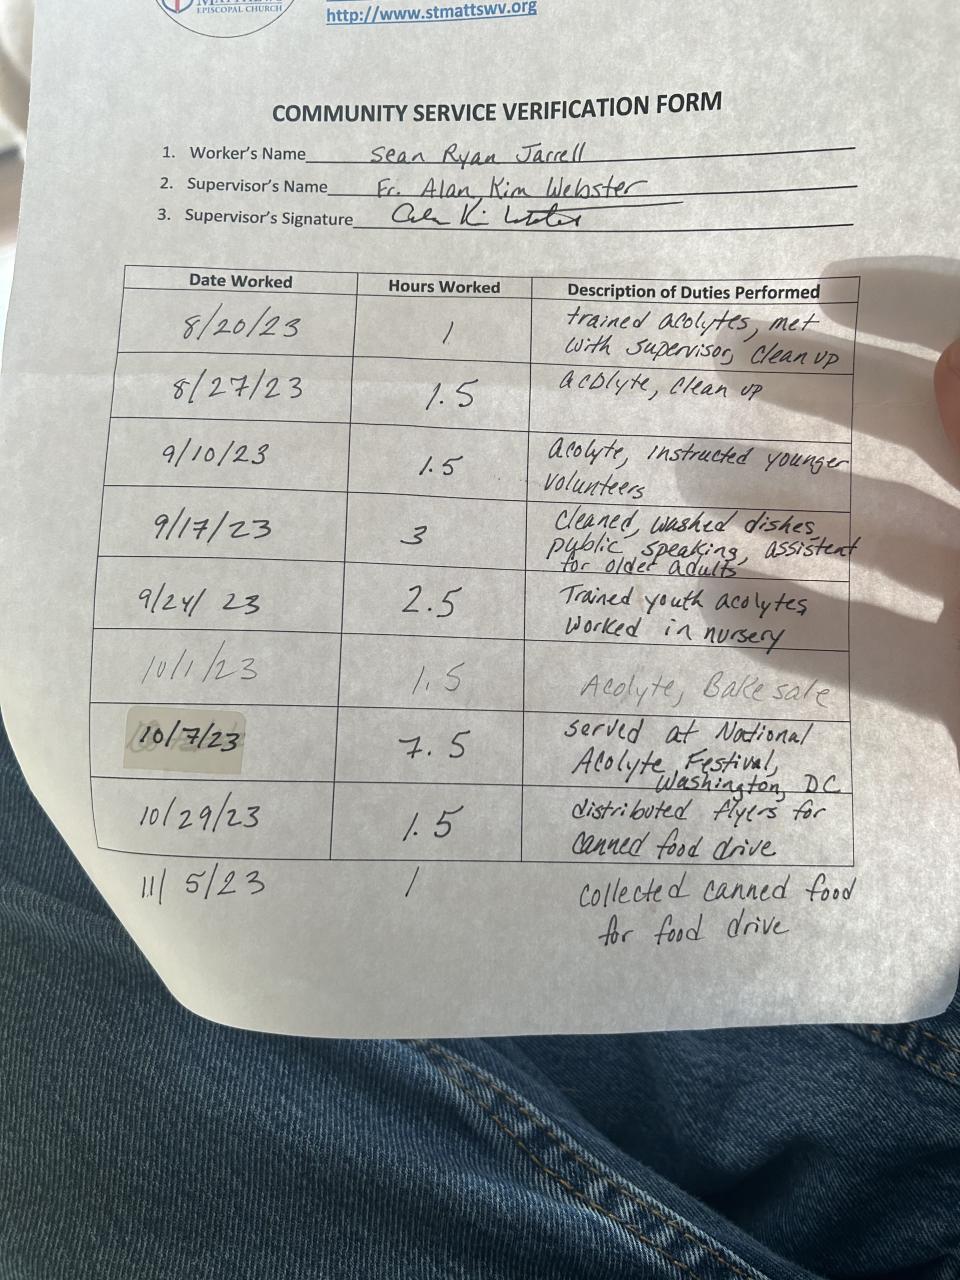 EPISCOPAL CHURCH
http://www.stmattswv.org
COMMUNITY SERVICE VERIFICATION FORM
1. Worker's Name Sean Ryan Jarrell
2. Supervisor's Name Fr. Alan Kim Webster
3. Supervisor's Signature
Date Worked Hours Worked Description of Duties Performed
8/20/23 1 trained acolytes, met
with supervisor, clean up
8/27/23 1.5 acolyte, clean up
9/10/23 1.5 Acolyte, instructed younger
volunteers
9/17/23 3 cleaned, washed dishes,
public speaking, assistent
for older adults
9/24/23 2.5 Trained youth acolytes,
worked in nursery
10/1/23 1.5 Acolyte, Bake sale
10/7/23 7.5 served at National
Acolyte Festival,
Washington, DC
10/29/23 1.5 distributed flyers for
canned food drive
11/5/23 1 collected canned food
for food drive